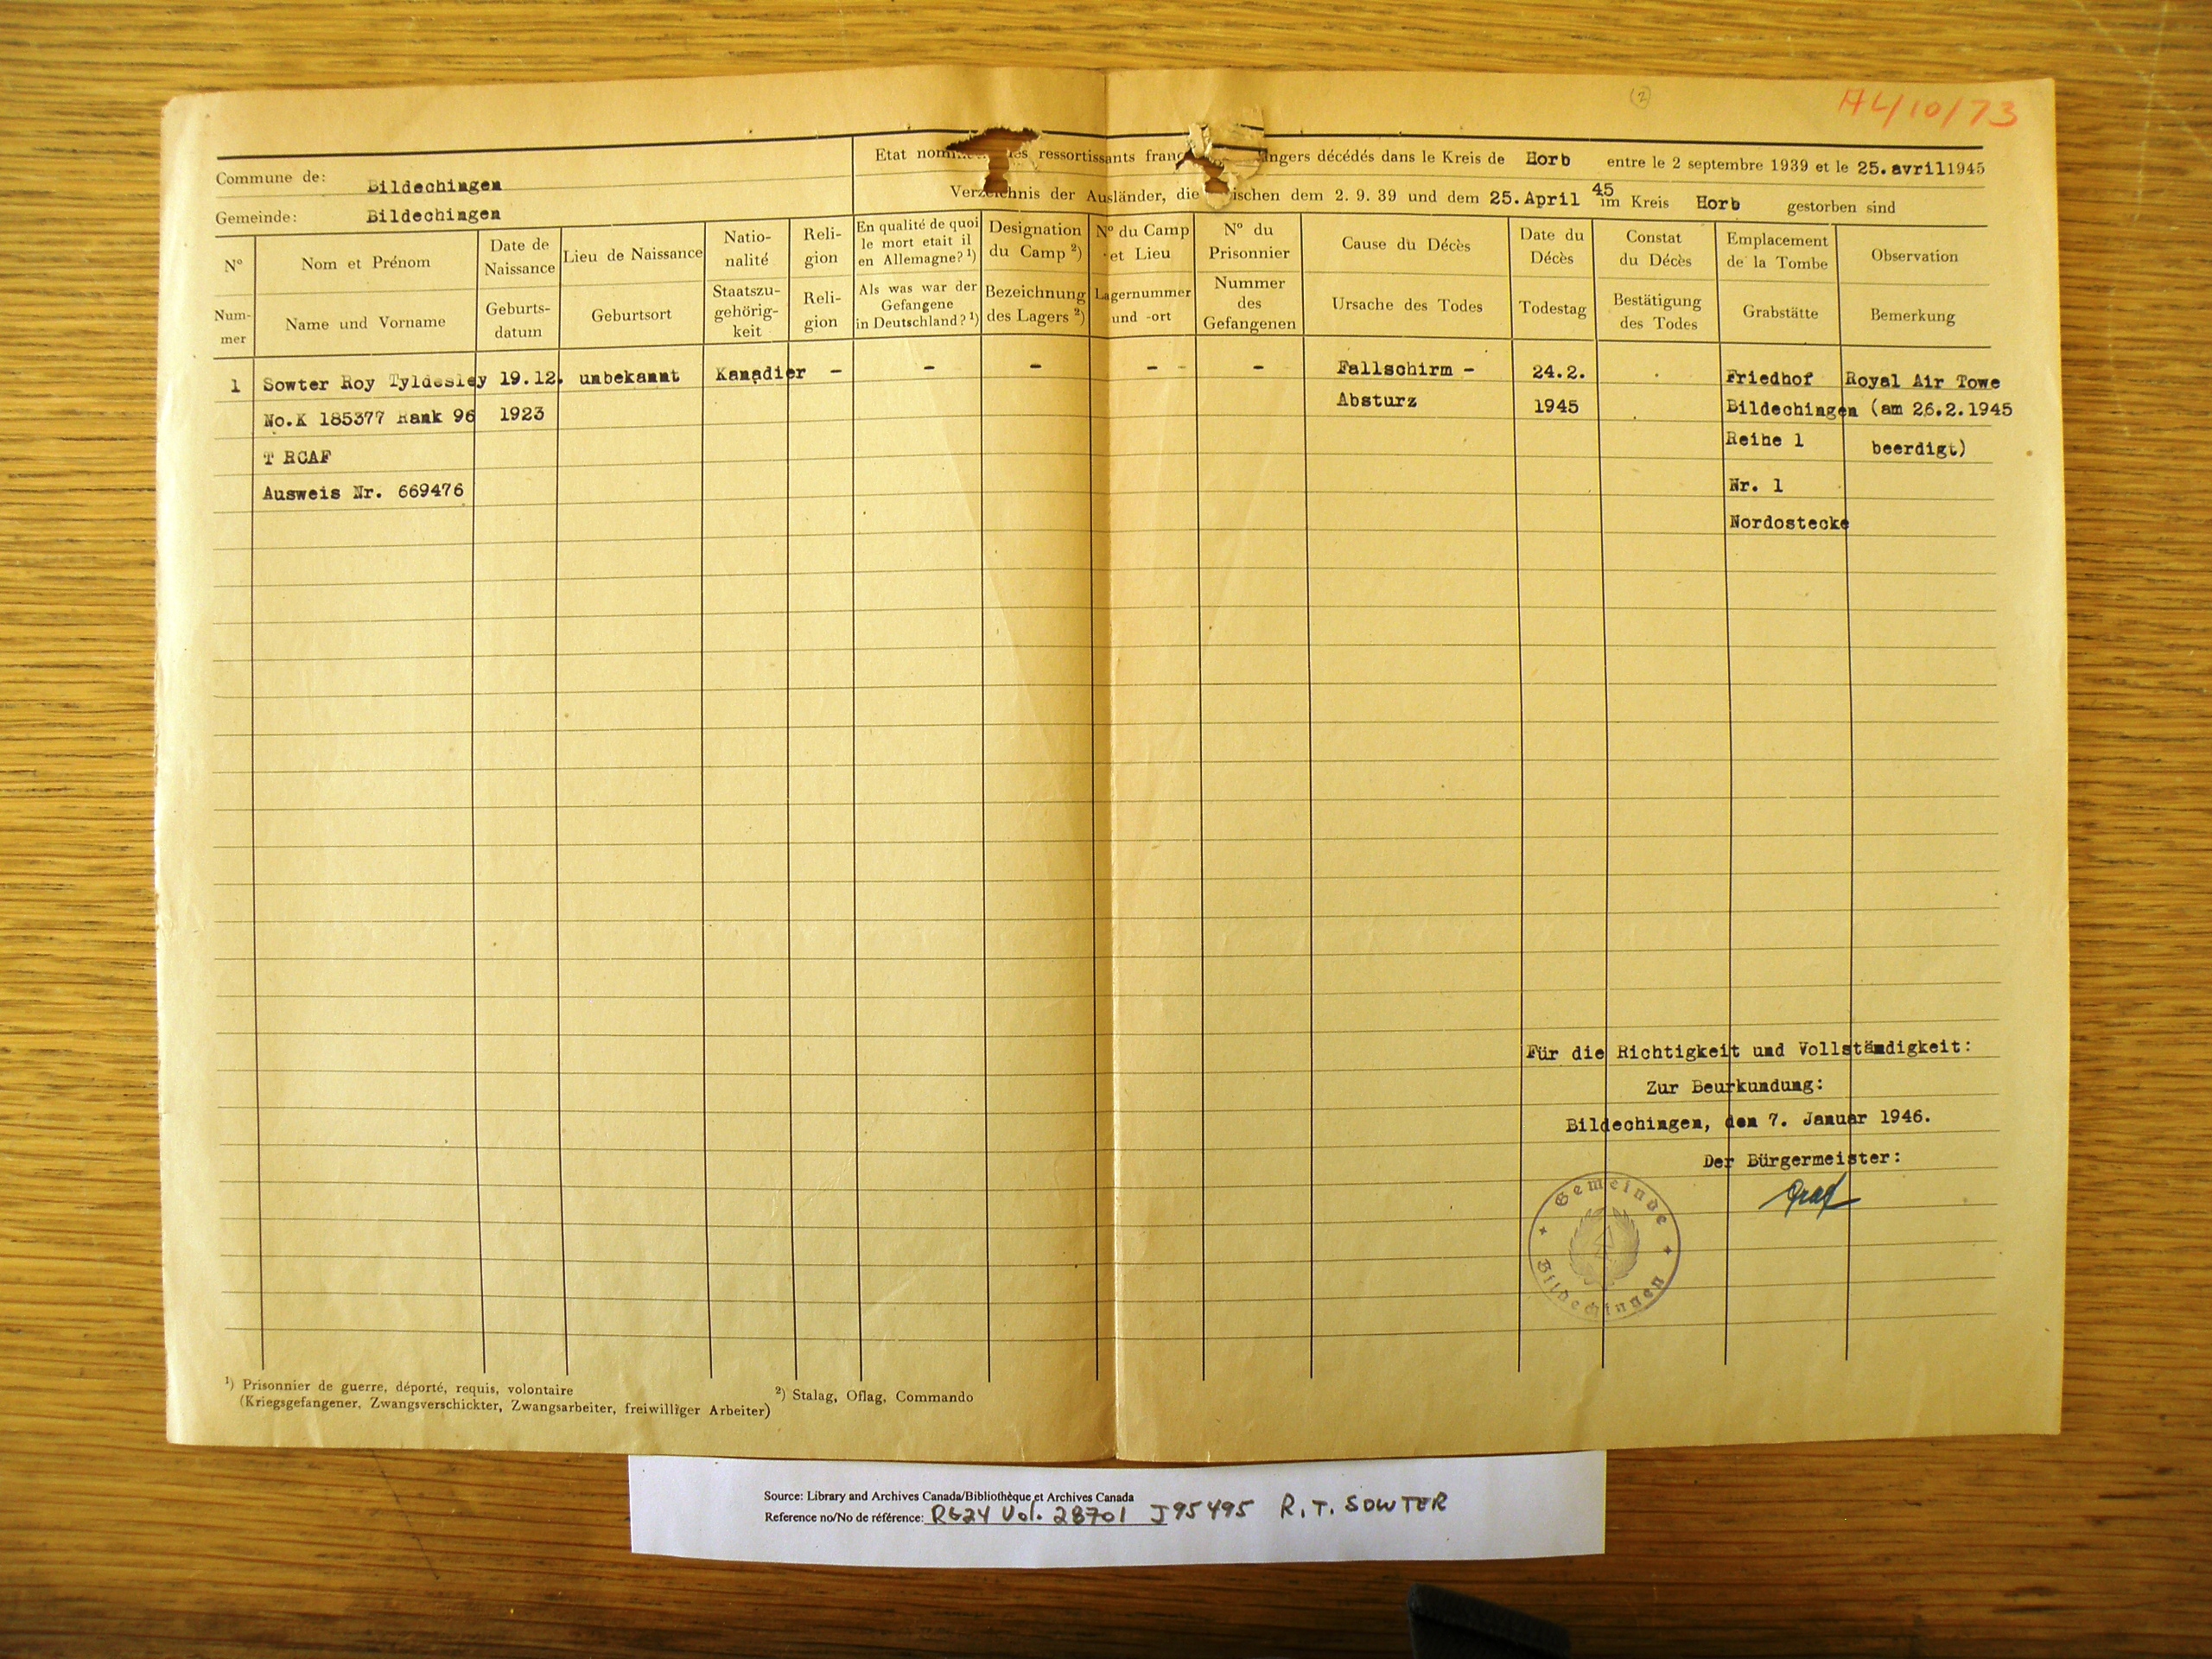 (2)
A4/10/73
Commune de: Bildechingen
Gemeinde: Bildechingen
ressortissants décédés dans le Kreis de Horb entre le 2 septembre 1939 et le 25.avril1945
der Ausländer, die dem 2. 9. 39 und dem 25.April 45 im Kreis Horb gestorben sind
Nº
Nom et Prénom
Date de
Naissance
Lieu de Naissance
Natio-
nalité
Reli-
gion
En qualité de quoi
le mort etait il
en Allemagne? ¹)
Designation
du Camp ²)
Nº du Camp
et Lieu
Nº du
Prisonnier
Cause du Décès
Date du
Décès
Constat
du Décès
Emplacement
de la Tombe
Observation
Num-
mer
Name und Vorname
Geburts-
datum
Geburtsort
Staatszu-
gehörig-
keit
Reli-
gion
Als was war der
Gefangene
in Deutschland? ¹)
Bezeichnung
des Lagers ²)
Lagernummer
und -ort
Nummer
des
Gefangenen
Ursache des Todes
Todestag
Bestätigung
des Todes
Grabstätte
Bemerkung
1 Sowter Roy Tyldesley 19.12. unbekannt Kanadier - - - - - - Fallschirm - 24.2. Friedhof Royal Air Towe
No.K 185377 Rank 96 1923 Absturz 1945 Bildechingen (am 26.2.1945
T RCAF Reihe 1 beerdigt)
Ausweis Nr. 669476 Nr. 1
Nordostecke
Für die Richtigkeit und Vollständigkeit:
Zur Beurkundung:
Bildechingen, den 7. Januar 1946.
Der Bürgermeister:
Graf
Gemeinde
Bildechingen
¹) Prisonnier de guerre, déporté, requis, volontaire
(Kriegsgefangener, Zwangsverschickter, Zwangsarbeiter, freiwilliger Arbeiter)
²) Stalag, Oflag, Commando
Source: Library and Archives Canada/Bibliothèque et Archives Canada
Reference no/No de référence: RG24 Vol. 28701 J95495 R.T. SOWTER